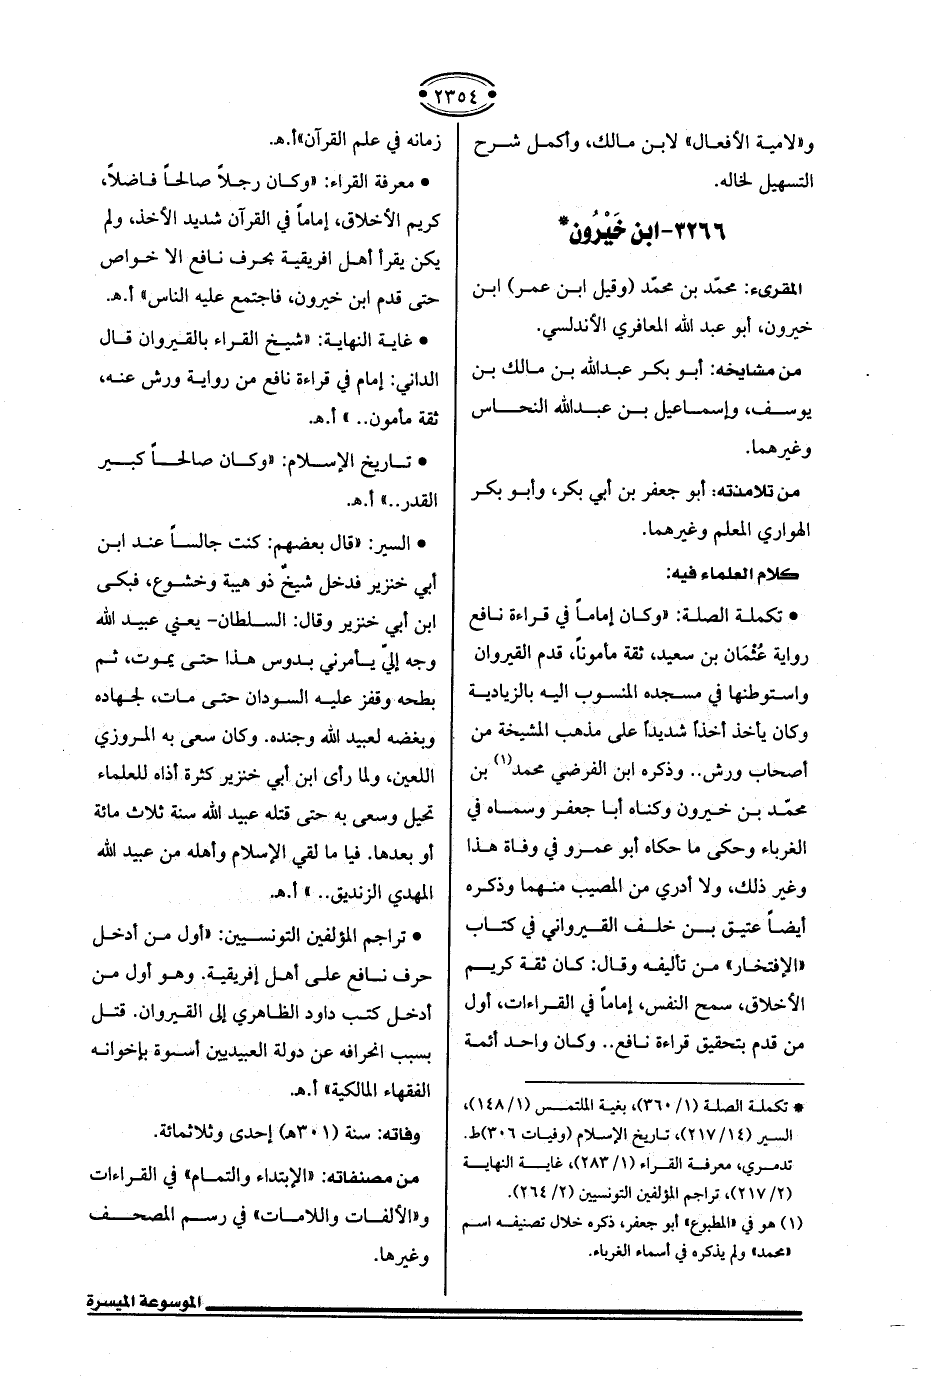 ٢٣٥٤
و«لامية الأفعال» لابن مالك، وأكمل شرح
التسهيل لخاله.
٣٢٦٦-ابن خَيْرُون*
المقرىء: محمّد بن محمّد (وقيل ابن عمر) ابن
خيرون، أبو عبد الله المعافري الأندلسي.
من مشايخه: أبو بكر عبدالله بن مالك بن
يوسف، وإسماعيل بن عبدالله النحاس
وغيرهما.
من تلامذته: أبو جعفر بن أبي بكر، وأبو بكر
الهواري المعلم وغيرهما.
كلام العلماء فيه:
• تكملة الصلة: «وكان إماماً في قراءة نافع
رواية عُثْمَان بن سعيد، ثقة مأموناً، قدم القيروان
واستوطنها في مسجده المنسوب اليه بالزيادية
وكان يأخذ أخذاً شديداً على مذهب المشيخة من
أصحاب ورش.. وذكره ابن الفرضي محمد(١) بن
محمّد بن خيرون وكناه أبا جعفر وسماه في
الغرباء وحكى ما حكاه أبو عمرو في وفاة هذا
وغير ذلك، ولا أدري من المصيب منهما وذكره
أيضاً عتيق بن خلف القيرواني في كتاب
«الإفتخار» من تأليفه وقال: كان ثقة كريم
الأخلاق، سمح النفس، إماماً في القراءات، أول
من قدم بتحقيق قراءة نافع.. وكان واحد أئمة
* تكملة الصلة (١/ ٣٦٠)، بغية الملتمس (١/ ١٤٨)،
السير (١٤/ ٢١٧)، تاريخ الإسلام (وفيات ٣٠٦)ط.
تدمري، معرفة القراء (١/ ٢٨٣)، غاية النهاية
(٢/ ٢١٧)، تراجم المؤلفين التونسيين (٢/ ٢٦٤).
(١) هو في «المطبوع» أبو جعفر، ذكره خلال تصنيفه اسم
«محمد» ولم يذكره في أسماء الغرباء.
زمانه في علم القرآن»أ.هـ.
• معرفة القراء: «وكان رجلاً صالحاً فاضلاً،
كريم الأخلاق، إماماً في القرآن شديد الأخذ، ولم
يكن يقرأ أهل افريقية بحرف نافع الا خواص
حتى قدم ابن خيرون، فاجتمع عليه الناس» أ.هـ.
• غاية النهاية: «شيخ القراء بالقيروان قال
الداني: إمام في قراءة نافع من رواية ورش عنه،
ثقة مأمون.. » أ.هـ.
• تاريخ الإسلام: «وكان صالحاً كبير
القدر..» أ.هـ.
• السير: «قال بعضهم: كنت جالساً عند ابن
أبي خنزير فدخل شيخٌ ذو هيبة وخشوع، فبكى
ابن أبي خنزير وقال: السلطان- يعني عبيد الله
وجه إليّ يأمرني بدوس هذا حتى يموت، ثم
بطحه وقفز عليه السودان حتى مات، لجهاده
وبغضه لعبيد الله وجنده. وكان سعى به المروزي
اللعين، ولما رأى ابن أبي خنزير كثرة أذاه للعلماء
تحيل وسعى به حتى قتله عبيد الله سنة ثلاث مائة
أو بعدها. فيا ما لقي الإسلام وأهله من عبيد الله
المهدي الزنديق.. » أ.هـ.
• تراجم المؤلفين التونسيين: «أول من أدخل
حرف نافع على أهل إفريقية. وهو أول من
أدخل كتب داود الظاهري إلى القيروان. قتل
بسبب انحرافه عن دولة العبيديين أسوة بإخوانه
الفقهاء المالكية» أ.هـ.
وفاته: سنة (٣٠١هـ) إحدى وثلاثمائة.
من مصنفاته: «الإبتداء والتمام» في القراءات
و«الألفات واللامات» في رسم المصحف
وغيرها.
الموسوعة الميسرة